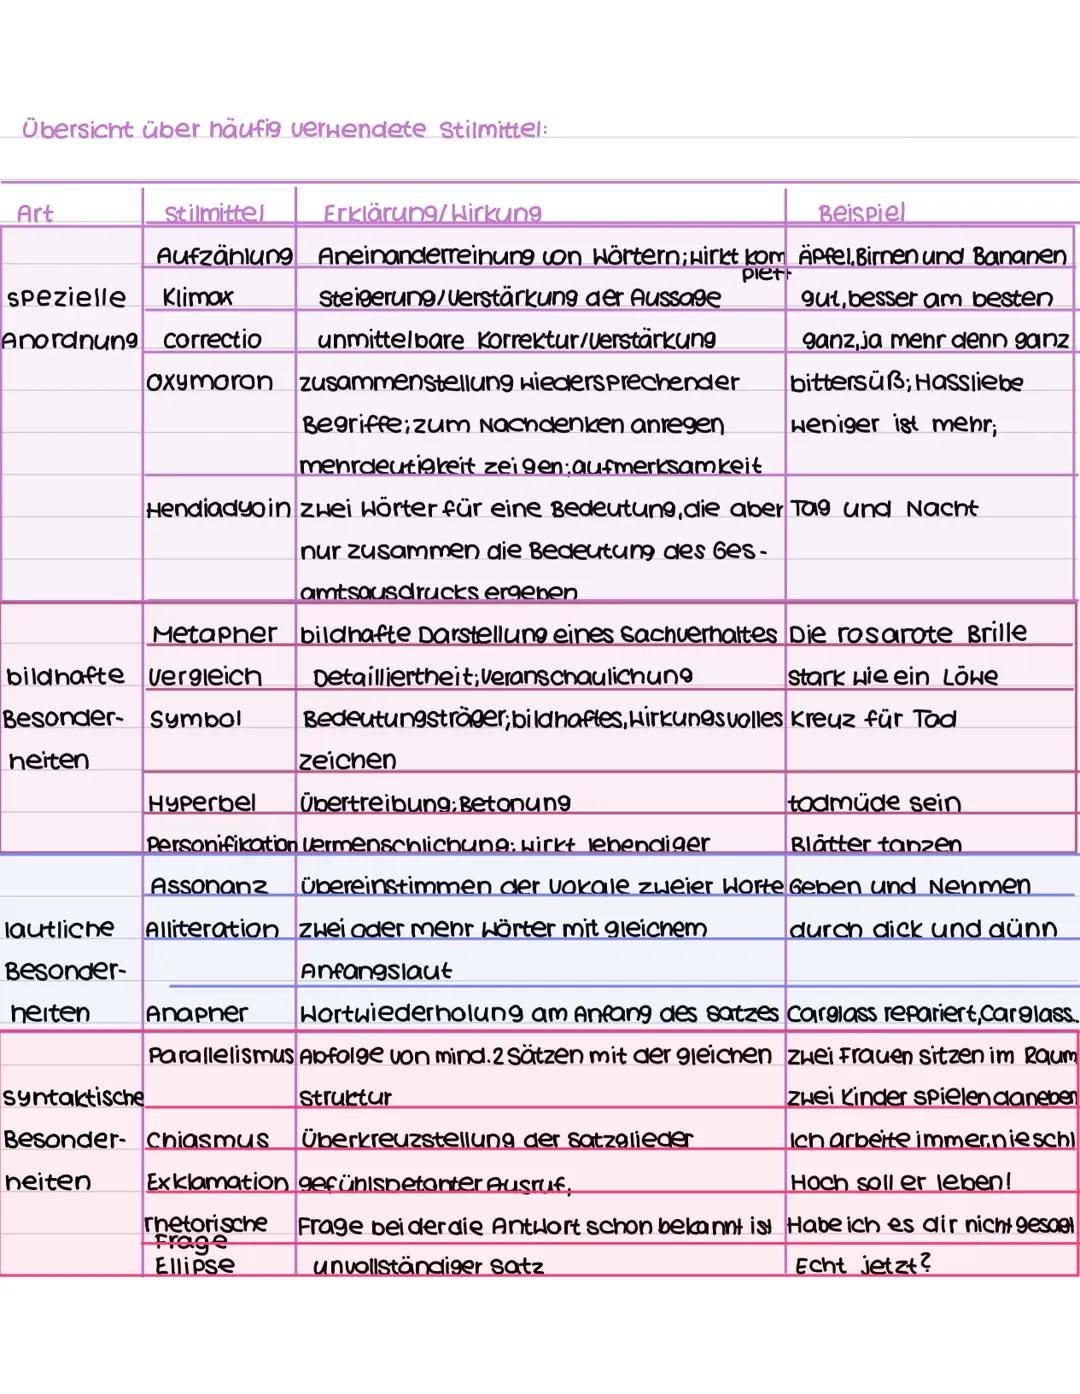 Übersicht über häufig verwendete Stilmittel:
Art Stilmittel Erklärung/Wirkung Beispiel
Aufzählung Aneinanderreihung von Wörtern; wirkt komplett Äpfel, Birnen und Bananen
spezielle Klimax Steigerung/Verstärkung der Aussage gut, besser am besten
Anordnung correctio unmittelbare Korrektur/Verstärkung ganz, ja mehr denn ganz
Oxymoron zusammenstellung wiedersprechender bittersüß; Hassliebe
Begriffe; zum Nachdenken anregen weniger ist mehr;
mehrdeutigkeit zeigen; aufmerksamkeit
Hendiadyoin zwei Wörter für eine Bedeutung, die aber Tag und Nacht
nur zusammen die Bedeutung des Ges-
amtsausdrucks ergeben
Metapher bildhafte Darstellung eines Sachverhaltes Die rosarote Brille
bildhafte Vergleich Detailliertheit; Veranschaulichung Stark wie ein Löwe
Besonder- Symbol Bedeutungsträger; bildhaftes, Wirkungsvolles Kreuz für Tod
heiten zeichen
Hyperbel Übertreibung; Betonung todmüde sein
Personifikation Vermenschlichung; wirkt lebendiger Blätter tanzen
Assonanz Übereinstimmen der Vokale zweier Worte Geben und Nehmen
lautliche Alliteration zwei oder mehr Wörter mit gleichem durch dick und dünn
Besonder- Anfangslaut
heiten Anapher Wortwiederholung am Anfang des Satzes Carglass repariert, Carglass..
Parallelismus Abfolge von mind. 2 Sätzen mit der gleichen Zwei Frauen sitzen im Raum
syntaktische Struktur Zwei Kinder spielen daneben
Besonder- Chiasmus Überkreuzstellung der Satzglieder Ich arbeite immer, nie schl
heiten Exklamation gefühlsbetonter Ausruf; Hoch soll er leben!
rhetorische Frage Frage bei der die Antwort schon bekannt ist Habe ich es dir nicht gesagt
Ellipse unvollständiger Satz Echt jetzt?